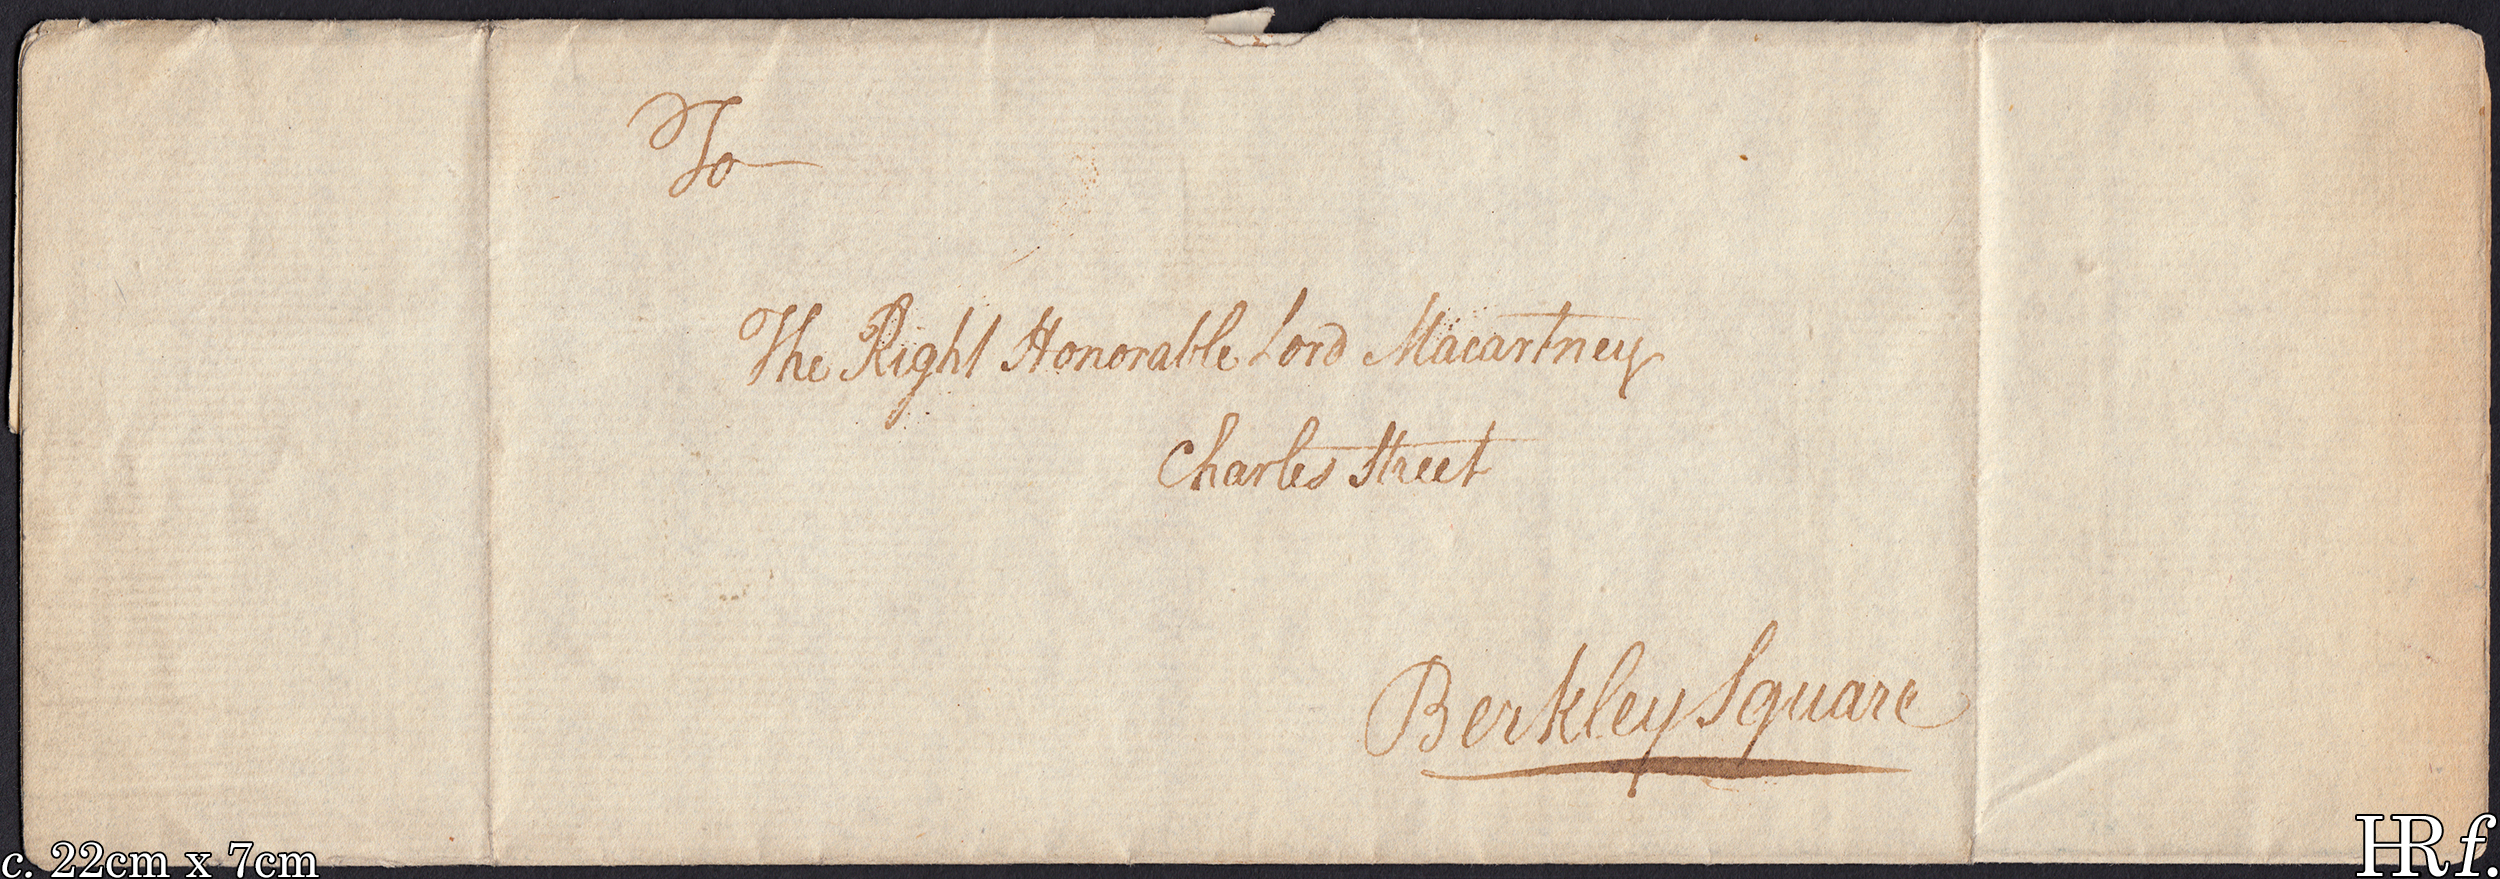 To
The Right Honorable Lord Macartney
Charles Street
Berkley Square
c. 22cm x 7cm
HRf.